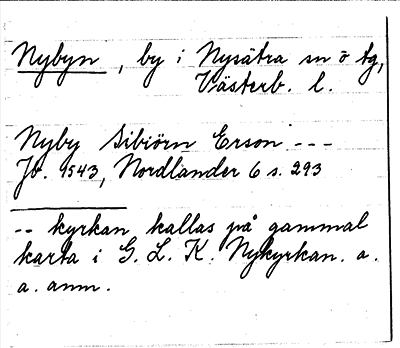 Nybyn, by i Nysätra sn o tg,
Västerb. l.
Nyby Sibiörn Erson ---
Jb. 1543, Nordlander 6 s. 293
-- kyrkan kallas på gammal
karta i G. L. K. Nykyrkan. a.
a. anm.